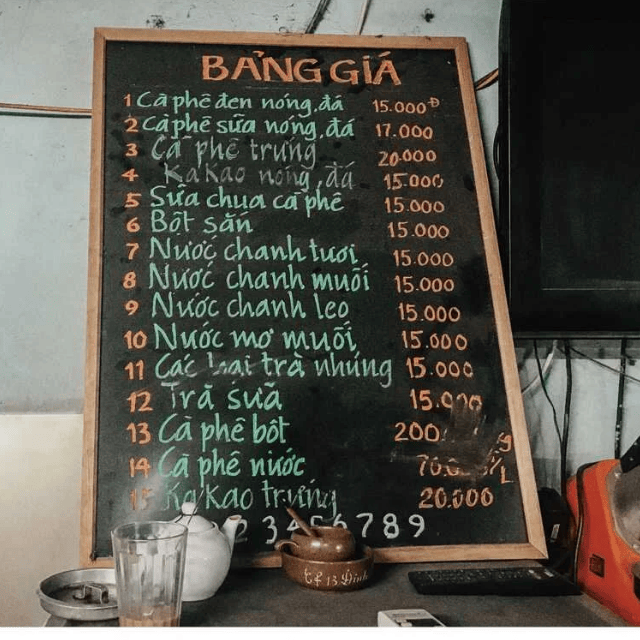 BẢNG GIÁ
1 Cà phê đen nóng, đá 15.000Đ
2 Cà phê sữa nóng, đá 17.000
3 Cà phê trứng 20.000
4 KaKao nóng, đá 15.000
5 Sữa chua cà phê 15.000
6 Bột sắn 15.000
7 Nước chanh tươi 15.000
8 Nước chanh muối 15.000
9 Nước chanh leo 15.000
10 Nước mơ muối 15.000
11 Các loại trà nhúng 15.000
12 Trà sữa 15.000
13 Cà phê bột 200
14 Cà phê nước L
15 KaKao trứng 20.000
2 3 4 5 6 7 8 9
Cf 13 Đinh